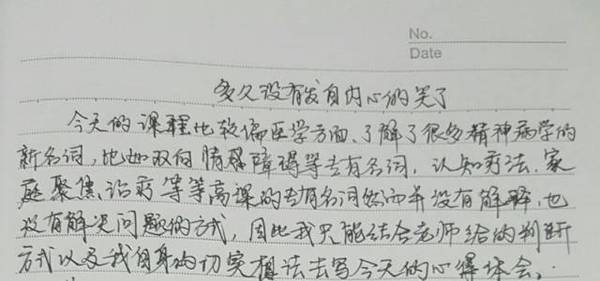 No.
Date
多久没有发自内心的笑了
今天的课程比较偏医学方面、了解了很多精神病学的
新名词，比如双向情感障碍等专有名词，认知疗法、家
庭聚焦治疗等等高课的专有名词然而并没有解释，也
没有解决问题的方式，因此我只能结合老师给的判断
方式以及我自身的切实想法去写今天的心得体会，